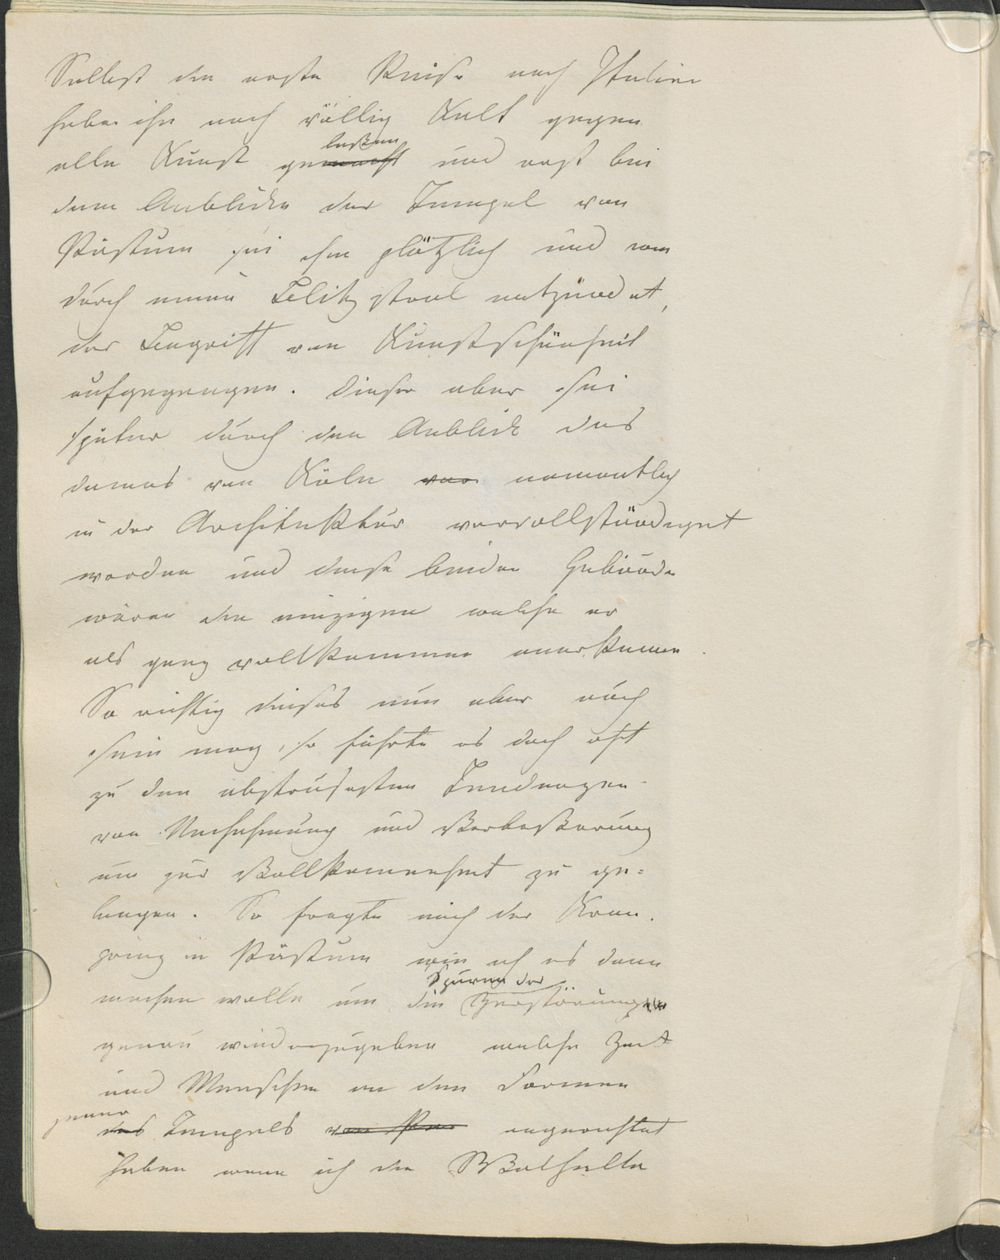 Selbst die erste Reise nach Italien
habe ihn noch völlig Kalt gegen
alle Kunst gemacht lassen und erst bei
dem Anblicke der Tempel von
Pästum sei ihm plötzlich und wie
durch einen Blitzstral entzündet,
der Begriff von Kunstschönheit
aufgegangen. Dieser aber sei
später durch den Anblick des
Domes von Köln namentlich
in der Architektur vervollständiget
worden und diese beiden Gebäude
wären die einzigen welche er
als ganz vollkommen anerkenne.
So richtig dieses nun aber auch
sein mag, so führte es doch oft
zu den abstrusesten Tendenzen
von Nachahmung und Verbesserung
um zur Vollkommenheit zu ge=
langen. So fragte mich der Kron-
prinz in Pästum wie ich es denn
machen wolle um die Spuren der Zerstörungen
genau wiederzugeben welche Zeit
und Menschen an den Formen
jener des Tempels angerichtet
haben wenn ich die Walhalla